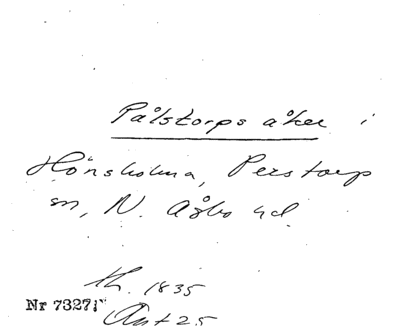 Pålstorps åker i
Hönsholma, Perstorp
sn, N. Åsbo hd.
th. 1835
Nr 7327
Ant 25